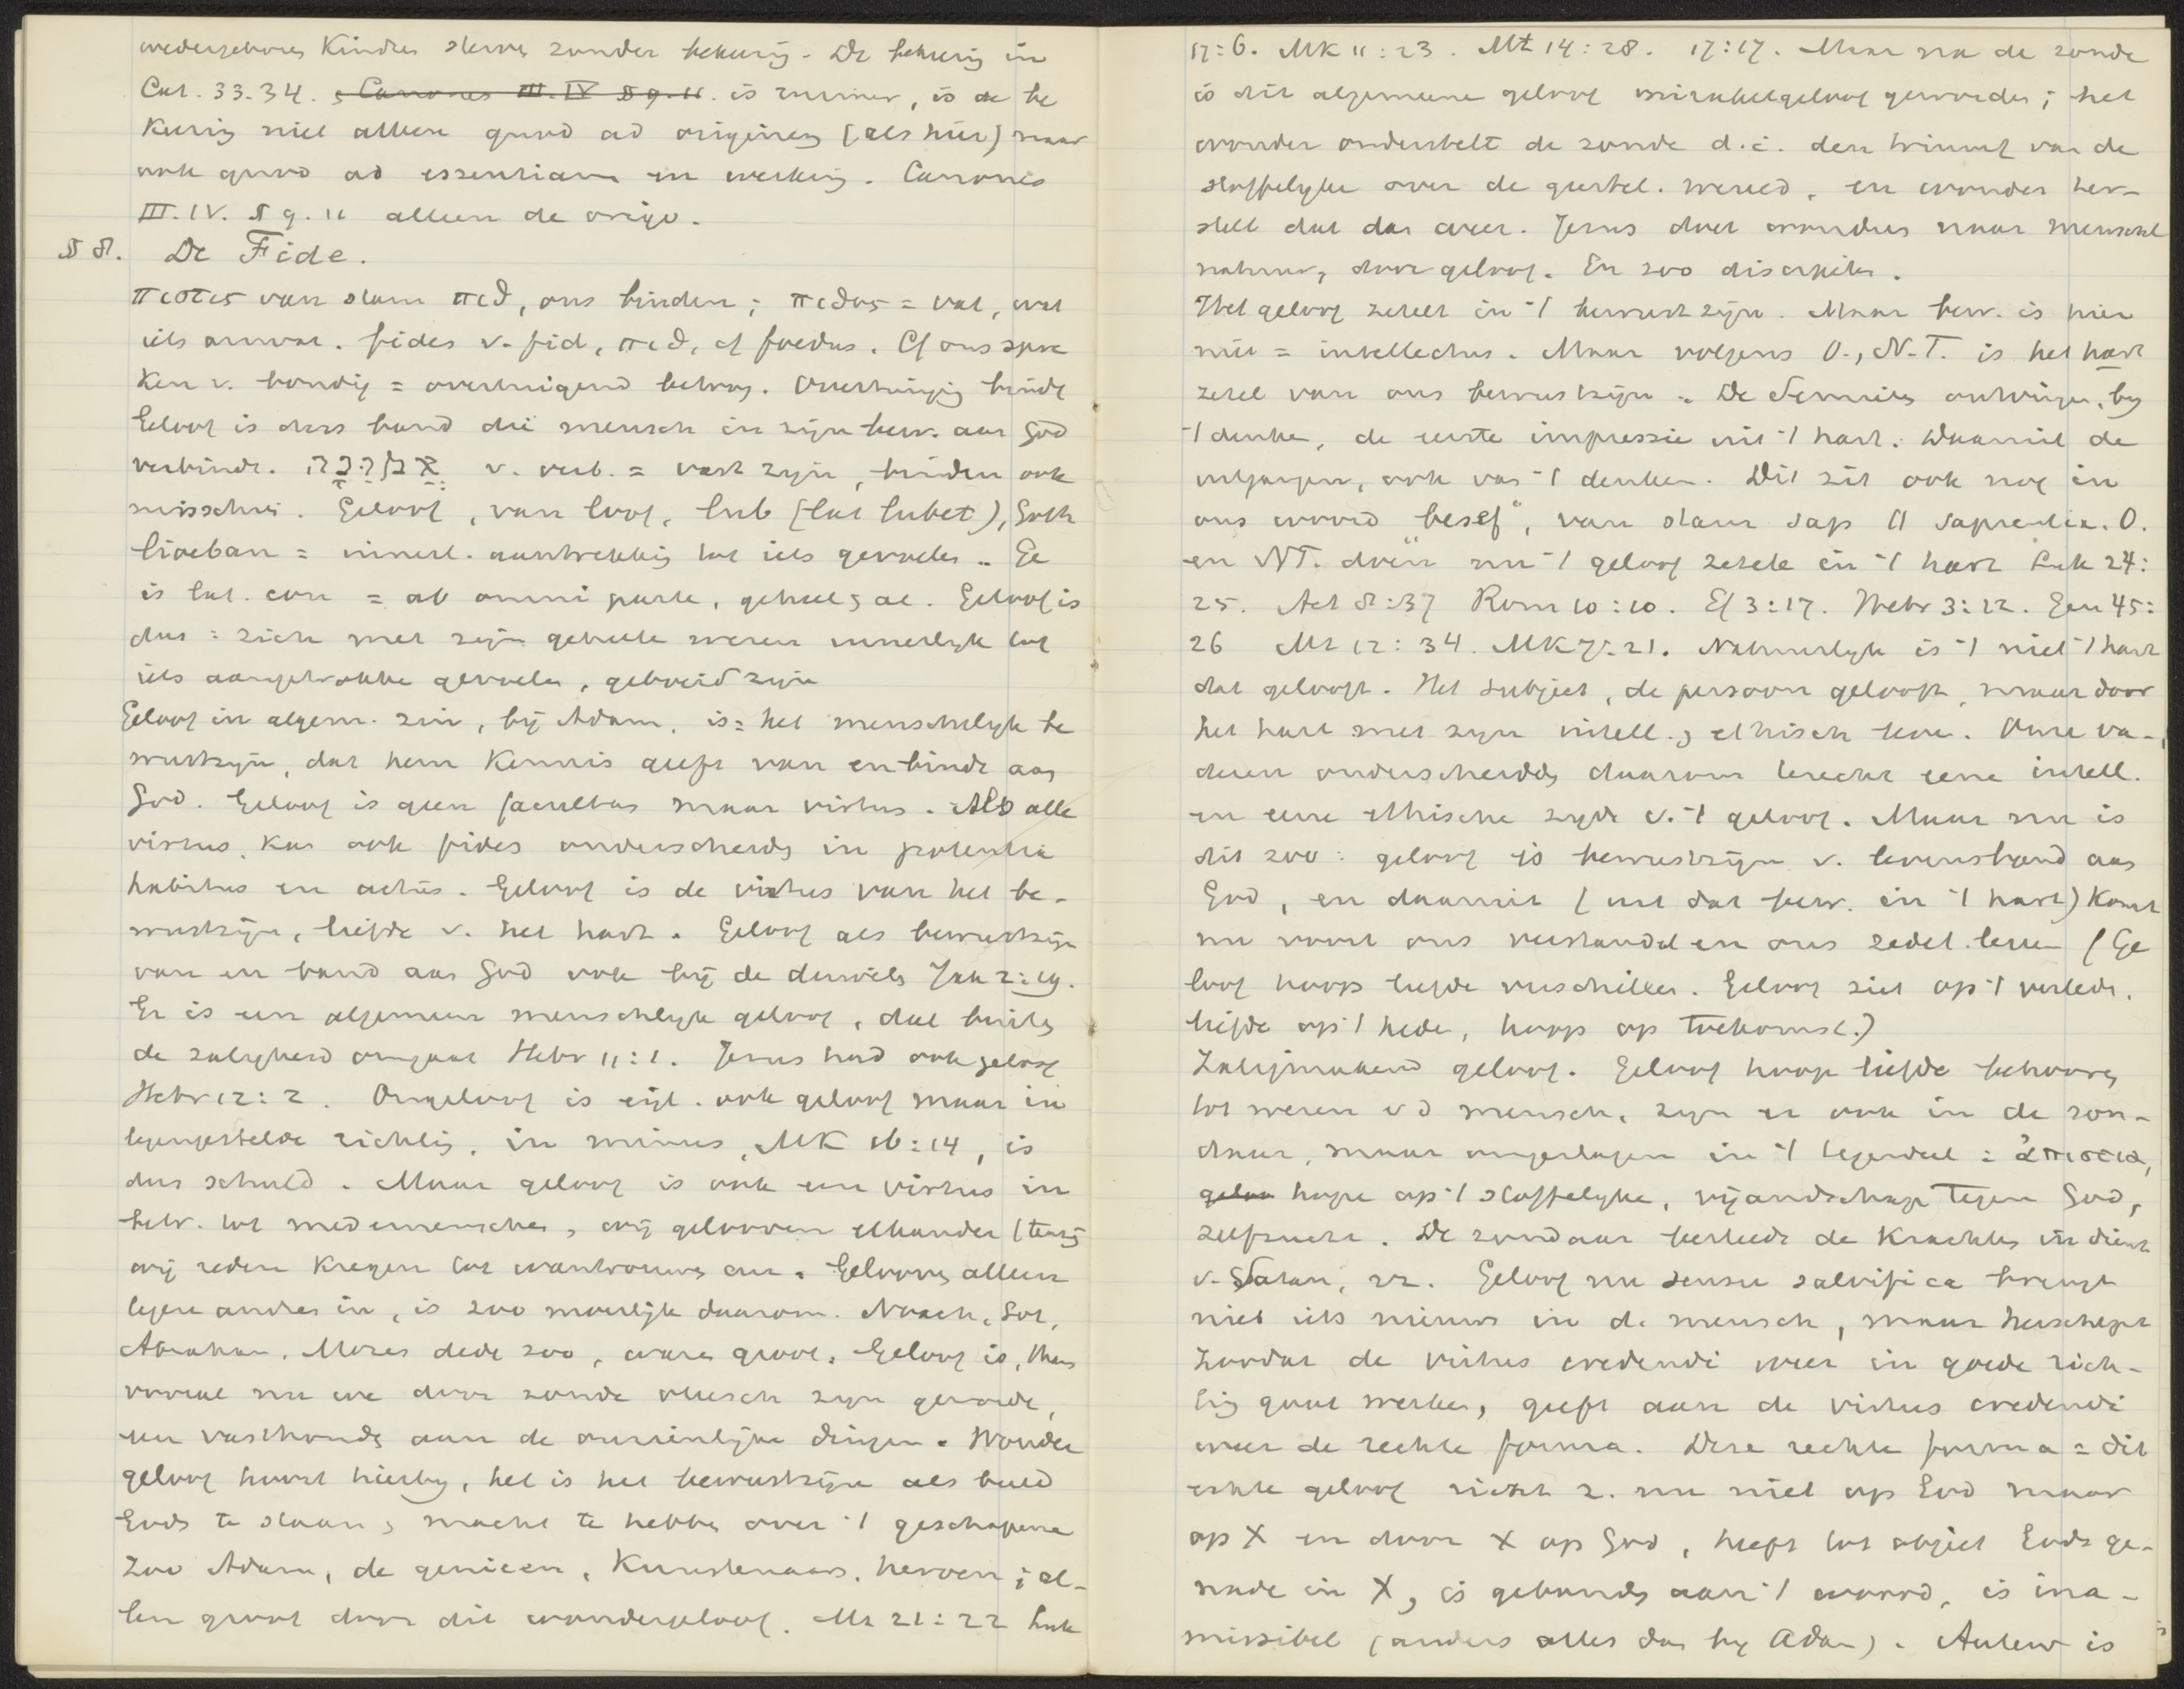 wedergeboren Kinder sterven zonder bekering. De bekering in
Cat. 33.34. ~~, Canones III. IV § 9. 11.~~ is ruimer, is de be
kering niet alleen quod ad originem (als hier) maar
ook quod ad essentiam en werking. Canones
III. IV. § 9. 11 alleen de origo.
§ 8. De Fide.
πιστις van stam πιθ, ons binden; πιθος = vat, wat
iets omvat. fides v. fid, πιθ, cf foedus. Cf ons spre
ken v. bondig = overtuigend betoog. Overtuiging bindt
Geloof is dus band die mensch in zijn bew. aan God
verbindt. v. verb. = vast zijn, binden ook
misschien. Geloof, van loof, lub (lat lubet), Goth
liocban = innerl. aantrekking tot iets gevoelen. Ge
is lat. con = ab omni parte, geheel & al. Geloof is
dus = zich met zijn geheele wezen innerlijk tot
iets aangetrokken gevoelen, geboeid zijn
Geloof in algem. zin, bij Adam, is = het menschelijk be
wustzijn, dat hem Kennis geeft van en bindt aan
God. Geloof is geen facultas maar virtus. Als alle
virtus, kan ook fides onderscheiden in potentia
habitus en actus. Geloof is de virtus van het be-
wustzijn, liefde v. het hart. Geloof als bewustzijn
van en band aan God ook bij de duivels Jak 2:19.
Er is een algemeen menschelijk geloof, dat buiten
de zaligheid omgaat Hebr 11:1. Jezus had ook geloof
Hebr 12:2. Ongeloof is eigl. ook geloof maar in
tegengestelde richting, in minus, MK 16:14, is
dus schuld. Maar geloof is ook een virtus in
betr. tot medemenschen, wij gelooven elkander (tenzij
wij reden kregen tot wantrouwen enz. Gelooven alleen
tegen andren in, is zoo moeilijk daarom. Noach, Lot,
Abraham, Mozes dede zoo, waren groot. Geloof is, thans
vooral nu we door zonde vleesch zijn geworden,
een vasthouden aan de onzienlijke dingen. Wonder
geloof hoort hierbij, het is het bewustzijn als beeld
Gods te staan & macht te hebben over 't geschapene
Zoo Adam, de genieën, Kunstenaars, heroen; al-
len groot door dit wondergeloof. Mt 21:22 Luk
17:6. MK 11:23. Mt 14:28. 17:17. Maar na de zonde
is dit algemeene geloof mirakelgeloof geworden; het
wonder onderstelt de zonde d.i. den triumf van de
stoffelijke over de geestel. wereld, en wonder her-
stelt dat dan weer. Jezus doet wonderen naar menschel
natuur, door geloof. En zoo discipelen.
Het geloof zetelt in 't bewustzijn. Maar bew. is hier
niet = intellectus. Maar volgens O., N.T. is het hart
zetel van ons bewustzijn. De Semieten ontvingen, bij
't denken, de eerste impressie uit 't hart. Waaruit de
uitgangen, ook van 't denken. Dit zit ook nog in
ons woord „besef“, van stam sap cf sapientia. O.
en NT. doen nu 't geloof zetelen in 't hart Luk 24:
25. Act 8:37 Rom 10:10. Ef 3:17. Hebr 3:12. Gen 45:
26 Mt 12:34. MK 7:21. Natuurlijk is 't niet 't hart
dat gelooft. Het subject, de persoon gelooft, maar door
het hart met zijn intell. & ethisch leven. Onze va-
deren onderscheidden daarom terecht eene intell.
en eene ethische zijde v. 't geloof. Maar nu is
dit zoo: geloof is bewustzijn v. levensband aan
God, en daaruit (uit dat bew. in 't hart) komt
nu voort ons verstandel en ons zedel. leven (Ge
loof hoop liefde verschillen. Geloof ziet op 't verleden,
liefde op 't heden, hoop op toekomst.)
Zaligmakend geloof. Geloof hoop liefde behooren
tot wezen v d mensch, zijn er ook in de zon-
daar, maar omgeslagen in 't tegendeel = ἀπιστια,
~~geloo~~ hope op 't stoffelijke, vijandschap tegen God,
zelfzucht. De zondaar besteedt de Krachten in dienst
v. Satan, enz. Geloof nu sensu salvifica brengt
niet iets nieuws in d. mensch, maar herschept
Zoodat de virtus credendi weer in goede rich-
ting gaat werken, geeft aan de virtus credendi
weer de rechte forma. Deze rechte forma = dit
echte geloof richt z. nu niet op God maar
op X en door X op God, heeft tot object Gods ge-
nade in X, is gebonden aan 't woord, is ina-
missibel (anders alles dan bij Adam). Auteur is